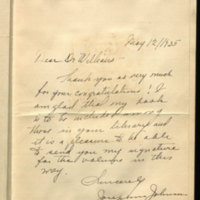 May 12/1935
Dear Dr Williams -
Thank you so very much
for your congratulations! I
am glad that my book
is to be included among
those in your library and
it is a pleasure to be able
to send you my signature
for the volume in this
way.
Sincerely
Josephine Johnson